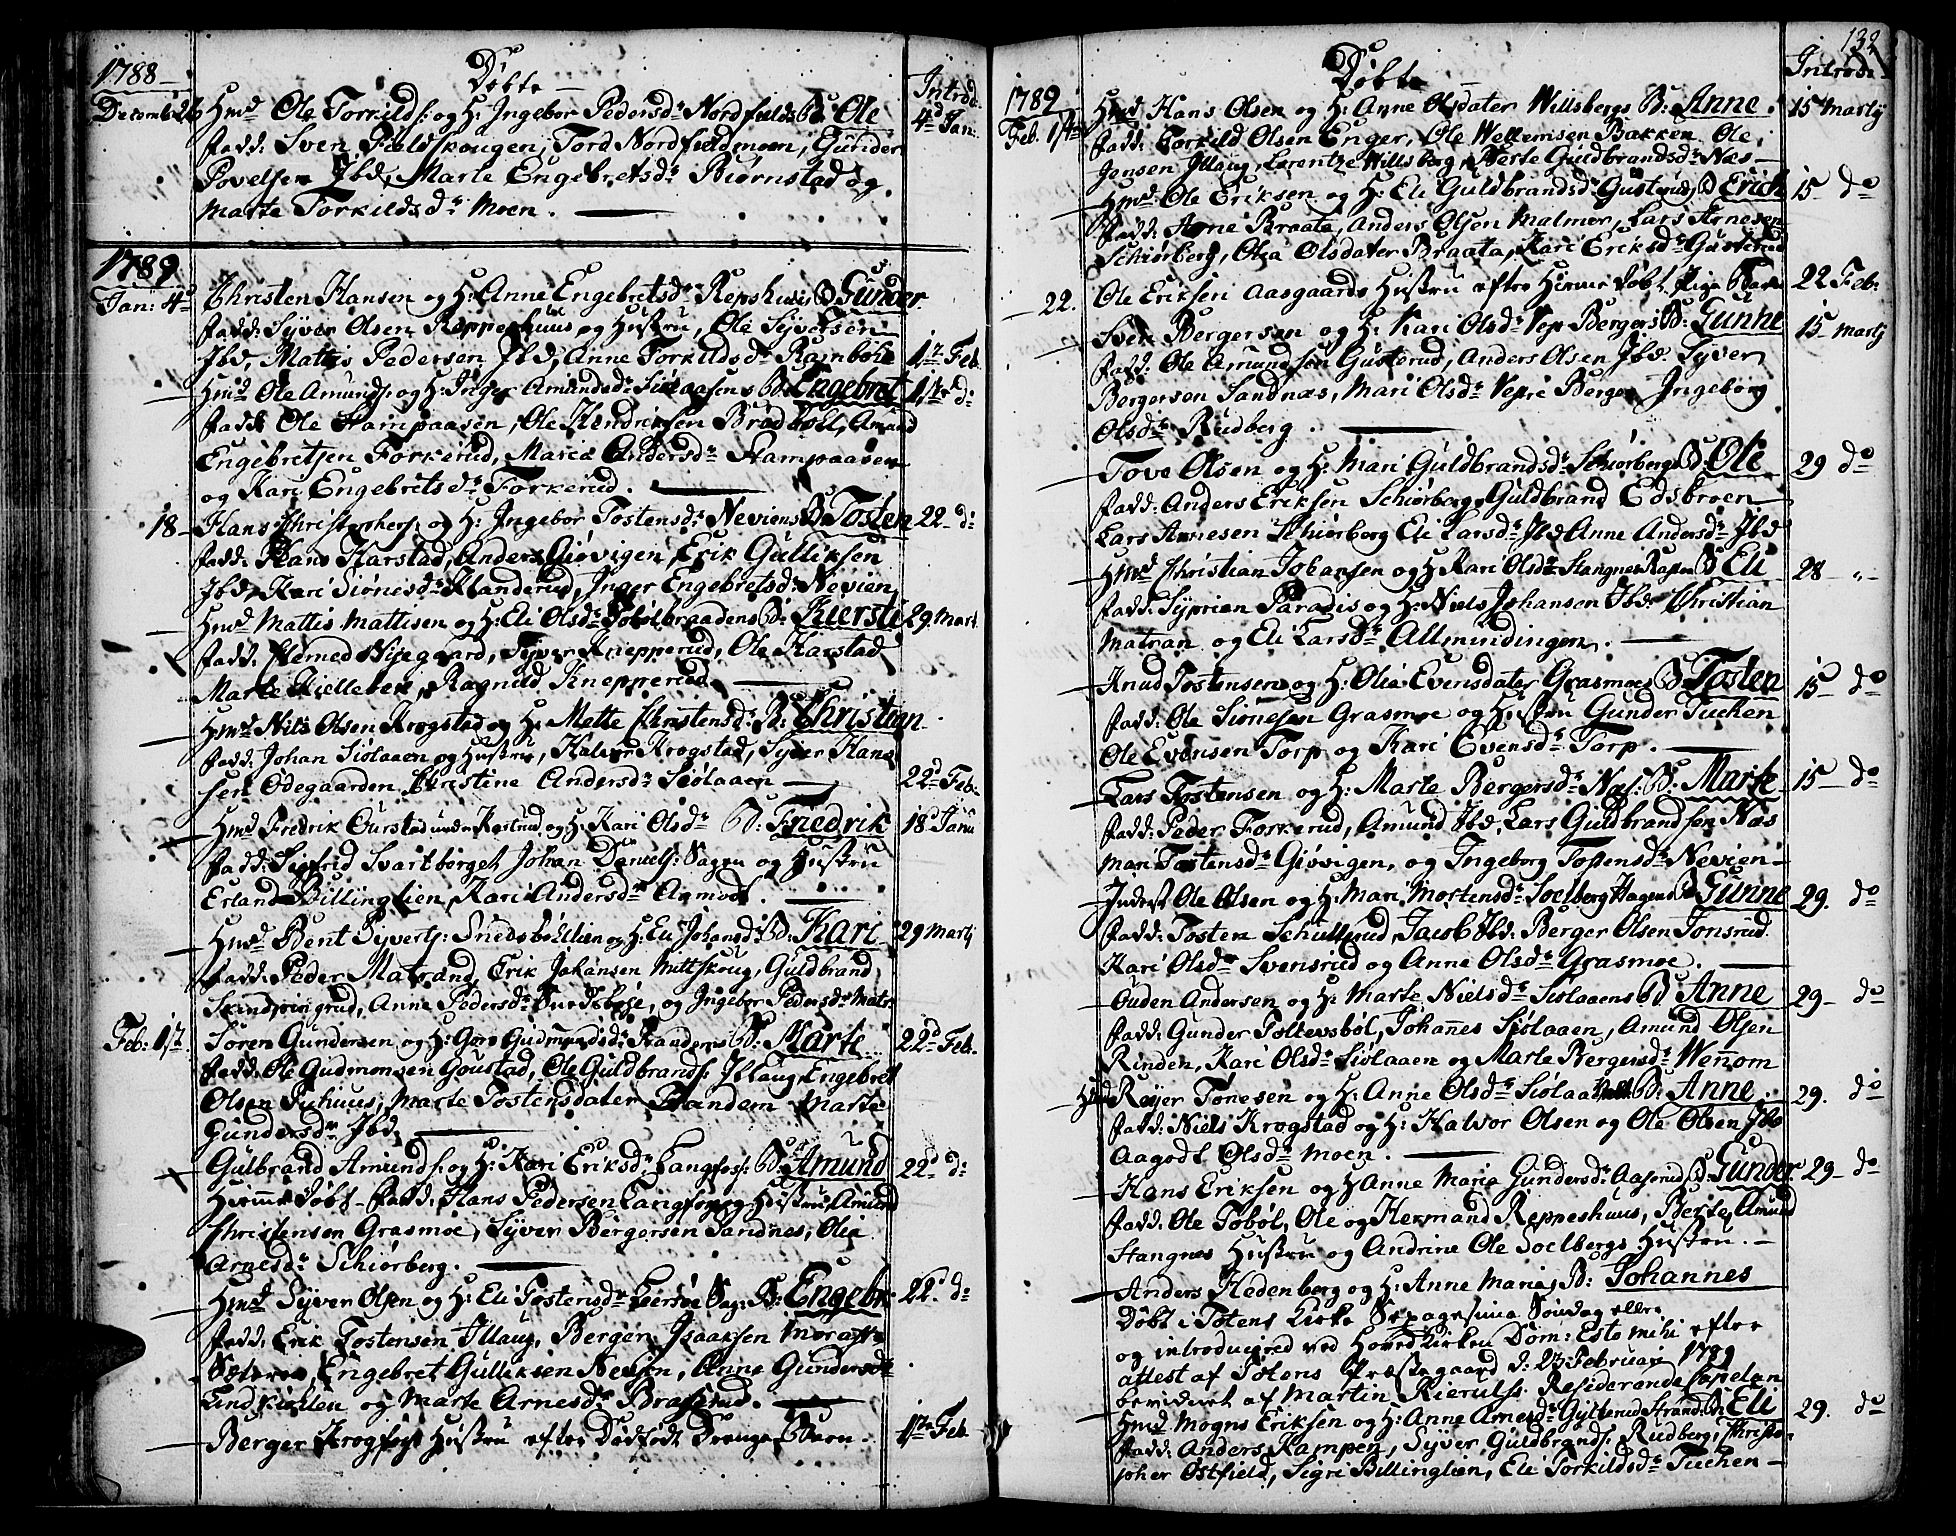 1788 Døbte Introd.
Decemb: 26 Hmd Ole Torkilds: og H: Ingebor Pedersdr Nordfields B: Ole 4d Jan:
Fadd: Sven Fieldskougen, Tord Nordfieldmoen, Gunder
Povelsen Ibd, Marte Engebretsdr Biørnstad og
Marte Torkildsdr Moen.
1789
Jan: 4d Christen Hansen og H: Anne Engebretsdr Repshuus B Gunder
Fadd: Syver Olsen Reppeshuus og Hustru, Ole Syversen
Ibd, Mattis Pedersen Ibd, Anne Torkildsdr Rambøhl 1te Feb
Hmd Ole Amunds: og H: Inger Amundsdr Siølaasens B: Engebret 1te do
Fadd: Ole Kampaasen, Ole Hendriksen Brødbøll, Amund
Engebretsen Forkerud, Maria Andersdr Kampaasen
og Kari Engebretsdr Forkerud.
18 Hans Christophers: og H: Ingebor Tostensdr Neviens B: Tosten 22 do
Fadd: Hans Harstad, Anders Giøvigen, Erik Gulliksen
Ibd, Kari Siønesdr Handerud, Inger Engebretsdr Nevien
Hmd Mattis Mattisen og H: Eli Olsdr Tobølbraadens B: Kiersti 29 Mart.
Fadd: Amed Nyegaard, Syver Knepperud, Ole Harstad
Marte Kiellebek, Ragnild Knepperud
Hmd Nils Olsen Krogstad og H: Mette Christensdr B: Christian
Fadd: Johan Siølaaen og Hustru, Halvor Krogstad, Syver Hans
sen Ødegaarden Christine Andersdr Siølaaen 22d Feb.
Hmd Fredrik Ourstad under Rostrud, og H: Kari Olsdr B: Friedrik 18d Janu
Fadd: Sigfrid Svartborget Johan Daniels: Sagen og Hustru
Erland Billinglien, Kari Andersdr Aamodt.
Hmd Bent Syvers: Snedsbøhlien og H: Eli Johansdr B: Kari 29 Martj
Fadd: Peder Matrand, Erik Johansen Mittskoug, Guldbrand
Skindpringrud, Anne Pedersdr, og Ingebor Pedersdr Matr.
Feb: 1te Søren Gundersen og H: Goro Gudmundsdr Randems B: Marte 22d Feb.
Fadd: Ole Gudmonsen Goustad, Ole Guldbrands: Illaug, Engebret
Olsen Puhuus, Marte Tostensdater Randem Marte
Gundersdr Ibd.
Gulbrand Amunds: og H: Kari Eriksdr Langfos: B: Amund 22d do
Hiemmedøbt. Fadd: Hans Pedersen Langfos og Hustru, Amund
Christensen Grasmoe, Syver Bergersen Sandnes, Olia
Arnesdr Schiørberg.
Hmd Syver Olsen og H: Eli Tostensdr Leirsøe Sag: B: Engebr 22d do
Fadd: Erik Tostensen Illaug, Berger Isaaksen Morast
Sæteren, Engebret Gulliksen Nevien, Anne Gundersdr
Lindkiølen og Marte Arnesdr Braserud.
Berger Krogfos's Hustru efter Dødfødt Drenge Barn. 1te Feb.
132
1789 Døbte Introd:
Feb. 1te Hmd Hans Olsen og H: Anne Olsdater Willsbergs B: Anne 15 Martj
Fadd: Torkild Olsen Enger, Ole Wettemsen Bakken, Ole
Jensen Illaug, Lorentze Willsberg, Berte Guldbrandsdr Næs
Hmd Ole Eriksen og H: Eli Guldbrandsdr Gusterud B Erich 15 do
Fadd: Arne Braata, Anders Olsen Malmer, Lars Arnesen
Schiørberg, Olia Olsdater Braata, Kari Eriksdr Gusterud
22. Ole Eriksen Aasgaards Hustru efter Hiemmedøbt Pige Barn 22 Feb:
Sven Bergersen og H: Kari Olsdr Vepe Bergers B: Gunne 15 Martj
Fadd: Ole Amundsen Gusterud, Anders Olsen Ibd Syver
Bergersen Sandnæs, Mari Olsdr Vepre Berger Ingeborg
Olsdr Rudberg.
Tove Olsen og H: Mari Guldbrandsdr Schiørbergs B: Ole 29 do
Fadd: Anders Eriksen Schiørberg Guldbrand Edsbroen
Lars Arnesen Schiørberg Eli Larsdr Ibd Anne Andersdr Ibd
Hmd Christian Johansen og H: Kari Olsdr Stangnes B Eli 28 „
Fadd: Syprian Paradis og H: Niels Johansen Ibd: Christian
Matran og Eli Larsdr Allmundingen.
Knud Tostensen og H: Olia Evensdater Grasmoes B Tosten 15 do
Fadd: Ole Sionesen Grasmoe og Hustru Gunder Tuchen
Ole Evensen Torp og Kari Evensdr Torp.
Lars Tostensen og H: Marte Bergersdr Næs: B: Marte 15 do
Fadd: Peder Forkerud, Amund Ibd, Lars Guldbrandsen Næs
Mari Tostensdr Giøvigen, og Ingeborg Tostensdr Nevien
Inderst Ole Olsen og H: Mari Mortensdr Soelberg Hagens B Gunne 29. do
Fadd: Tosten Schullerud, Jacob Ibd: Berger Olsen Tonsrud
Kari Olsdr Svensrud og Anne Olsdr Grasmoe.
Ouden Andersen og H: Marte Nielsdr Siølaaens B Anne 29 do
Fadd: Gunder Poltersbøl, Johannes Siølaaen, Amund Olsen
Rinden, Kari Olsdr Siølaaen og Marte Bergersdr Wennom
Hmd Reyer Tønesen og H: Anne Olsdr Siølaa B: Anne 29. do
Fadd: Niels Krogstad og H: Halvor Olsen og Ole Olsen Ibd
Aagodt Olsdr Moen.
Hans Eriksen og H Anne Maria Gundersdr Aaserud B: Gunder 29 do
Fadd: Ole Tobøl, Ole og Hermand Reppeshuus, Berte Amund
Stangnes Hustru og Andrine Ole Soelbergs Hustru.
Anders Hedenberg og H: Anne Maria, B: Johannes
Døbt i Totens Kirke Sepagesima Søndag eller
og introduceret ved Hoved Kirken Dom: Esto mihi efter
attest af Totens Præstegaard d: 23 Februari 1789
bevidnet af Martin Kierulff Residerende Capelan
Hmd Mogns Eriksen og H: Anne Arnesdr Gylterud Strand: B: Eli 29. do
Fadd: Anders Kampen, Syver Guldbrands: Rudberg, Christo-
pher Østfield, Sigri Billinglien, Eli Torkildsdr Tuchen